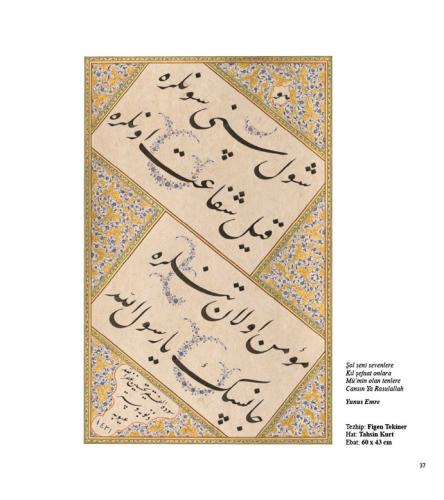 هو
شول سنی سونلره
قیل شفاعت اونلره
مؤمن اولان تنلره
جانسك یا رسول الله
١٤٣١
Şol seni sevenlere
Kıl şefaat onlara
Mü'min olan tenlere
Cansın Ya Rasulallah
Yunus Emre
Tezhip: Figen Tekiner
Hat: Tahsin Kurt
Ebat: 60 x 43 cm
37